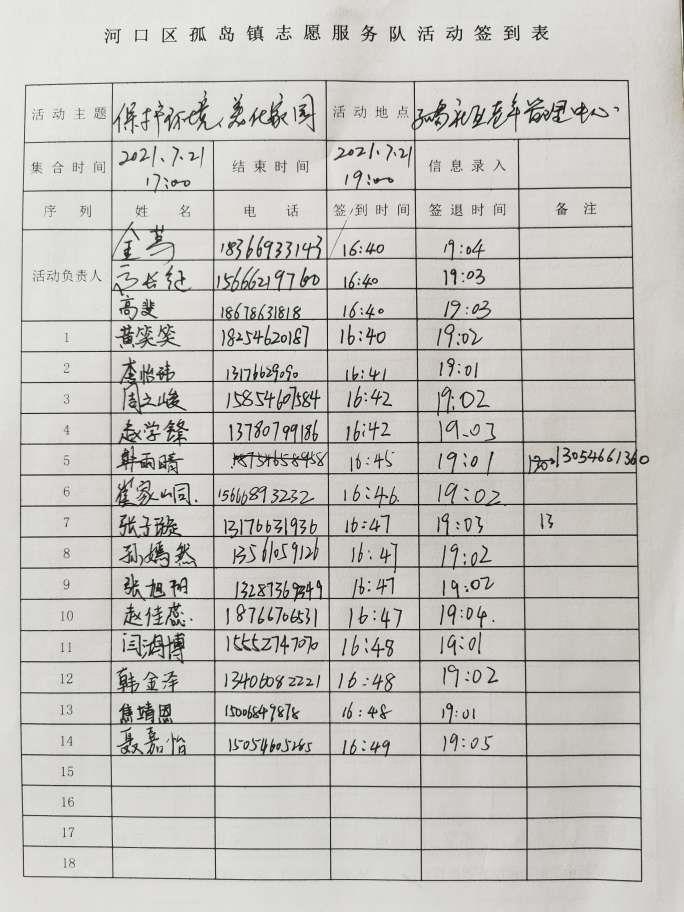 河口区孤岛镇志愿服务队活动签到表
活动主题 保护环境,美化家园 活动地点 老年管理中心
集合时间 2021.7.21 17:00 结束时间 2021.7.21 19:00 信息录入
序列 姓名 电话 签到时间 签退时间 备注
活动负责人
18366933143 16:40 19:04
15666219760 16:40 19:03
高斐 18678631818 16:40 19:03
1 黄笑笑 18254620187 16:40 19:02
2 李怡玮 13176629090 16:41 19:01
3 周立峻 15854607584 16:42 19:02
4 赵学锋 13780799186 16:42 19.03
5 韩雨晴 16:45 19:01 13054661360
6 崔家 15666893232 16:46. 19:02
7 张子璇 13176631936 16:47 19:03 13
8 孙嫣然 13561059126 16:47 19:02
9 张旭翔 16:47 19:02
10 赵佳蕊. 18766706531 16:47 19:04.
11 闫鸿博 15552747070 16:48 19:01
12 韩金泽 13406082221 16:48 19:02
13 焦靖恩 15006849878 16:48 19:01
14 聂嘉怡 15054605265 16:49 19:05
15
16
17
18